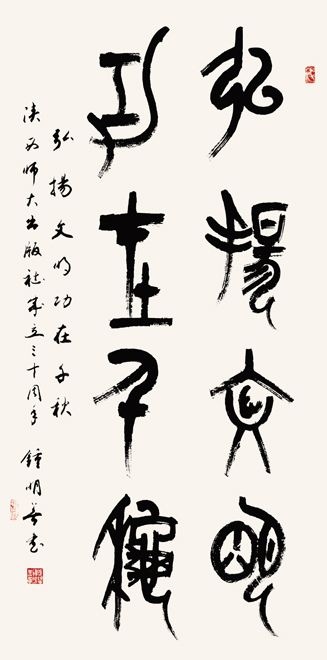 弘揚文明
功在千秋
弘揚文明功在千秋
陕西师大出版社成立三十周年
鍾明善書